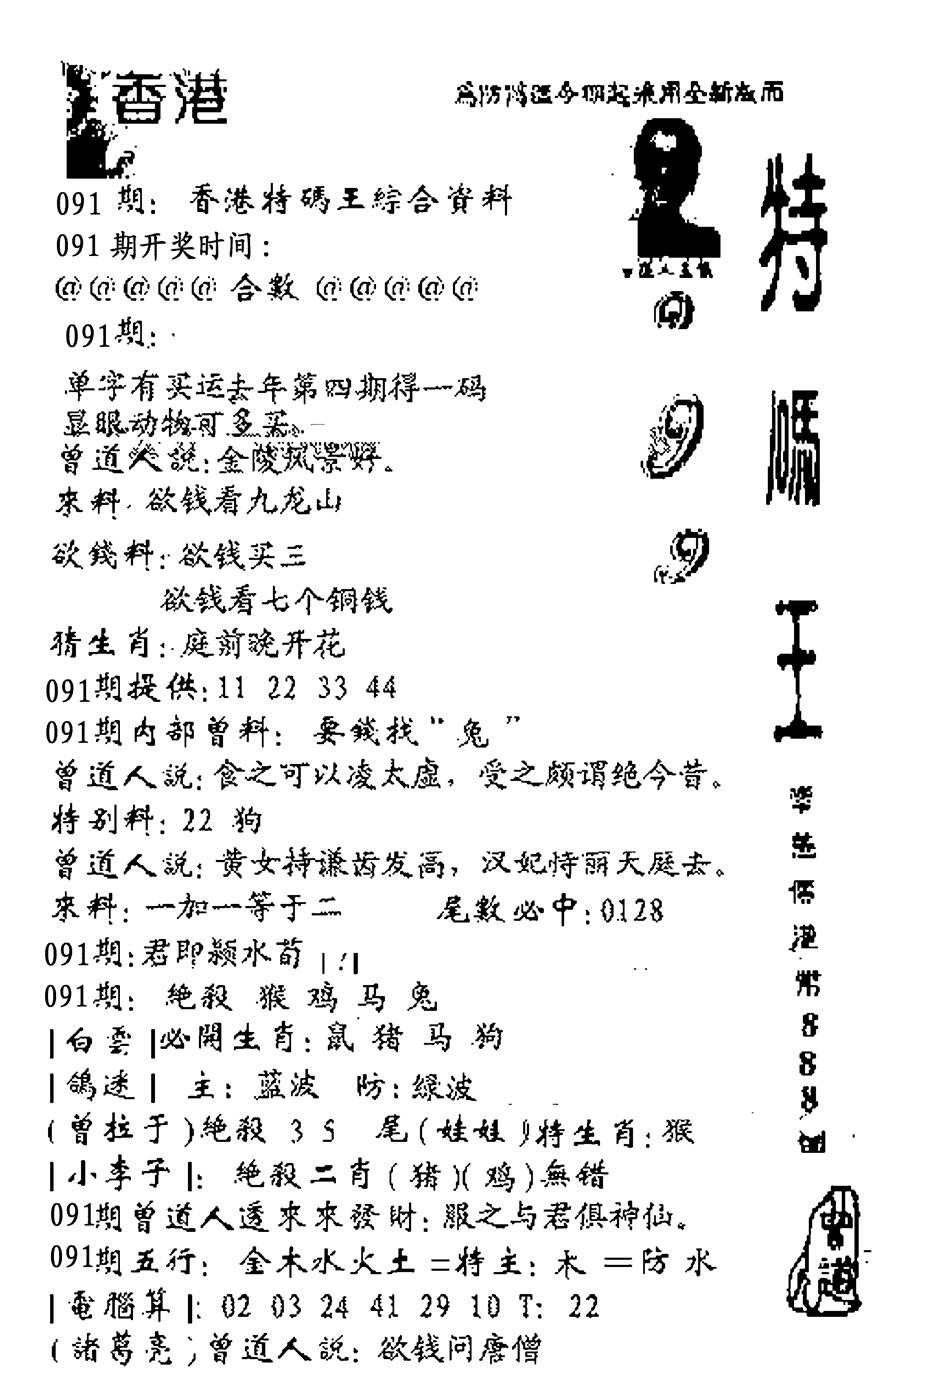 香港
特碼王
091期: 香港特碼王綜合資料
091期开奖时间:
@@@@@ 合數 @@@@@
091期:
单字有买运去年第四期得一码
显眼动物可多买。
曾道人説:金陵风景好。
來料:欲钱看九龙山
欲錢料:欲钱买三
欲钱看七个铜钱
猜生肖:庭前晚开花
091期提供:11 22 33 44
091期内部曾料: 要錢找“兔”
曾道人説:食之可以凌太虚,受之颇谓绝今昔。
特别料:22 狗
曾道人説:黄女持谦齿发高,汉妃恃丽天庭去。
來料:一加一等于二 尾數必中:0128
091期:君即颍水荀
091期: 絶殺 猴 鸡 马 兔
|白雲|必開生肖:鼠 猪 马 狗
|鴿迷| 主: 蓝波 防:绿波
(曾拉于)絶殺 3 5 尾(娃娃)特生肖:猴
|小李子|: 絶殺二肖(猪)(鸡)無错
091期曾道人透來來發財:服之与君俱神仙。
091期五行: 金木水火土=特主:木 =防 水
|電腦算|: 02 03 24 41 29 10 T: 22
(諸葛亮)曾道人説:欲钱问唐僧
888